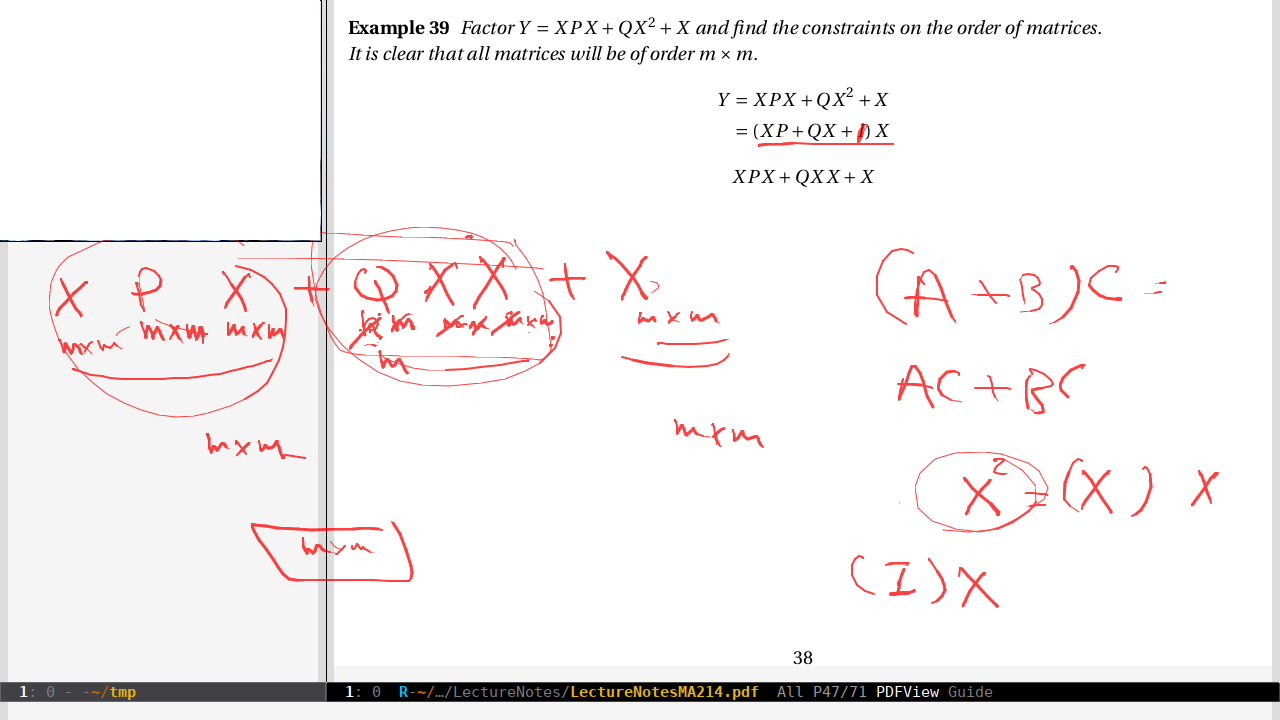 Example 39 Factor Y = XPX + QX² + X and find the constraints on the order of matrices.
It is clear that all matrices will be of order m × m.
Y = XPX + QX² + X
= (XP + QX + I) X
XPX + QXX + X
X P X + Q X X + X
m×m m×m m×m m m×m m×m
m
m×m
m×m
m×m
(A + B) C =
AC + BC
X² = (X) X
(I) X
38
1: 0 - -~/tmp
1: 0 R-~/…/LectureNotes/LectureNotesMA214.pdf All P47/71 PDFView Guide